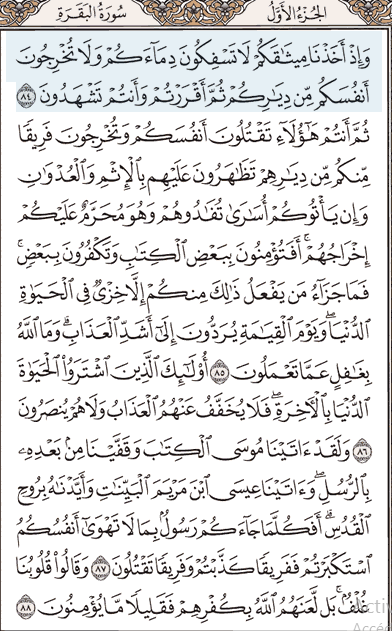 الجزء الأول سورة البقرة
وَإِذْ أَخَذْنَا مِيثَٰقَكُمْ لَا تَسْفِكُونَ دِمَآءَكُمْ وَلَا تُخْرِجُونَ
أَنفُسَكُم مِّن دِيَٰرِكُمْ ثُمَّ أَقْرَرْتُمْ وَأَنتُمْ تَشْهَدُونَ ٨٤
ثُمَّ أَنتُمْ هَٰٓؤُلَآءِ تَقْتُلُونَ أَنفُسَكُمْ وَتُخْرِجُونَ فَرِيقًا
مِّنكُم مِّن دِيَٰرِهِمْ تَظَٰهَرُونَ عَلَيْهِم بِٱلْإِثْمِ وَٱلْعُدْوَٰنِ
وَإِن يَأْتُوكُمْ أُسَٰرَىٰ تُفَٰدُوهُمْ وَهُوَ مُحَرَّمٌ عَلَيْكُمْ
إِخْرَاجُهُمْ ۚ أَفَتُؤْمِنُونَ بِبَعْضِ ٱلْكِتَٰبِ وَتَكْفُرُونَ بِبَعْضٍ ۚ
فَمَا جَزَآءُ مَن يَفْعَلُ ذَٰلِكَ مِنكُمْ إِلَّا خِزْىٌ فِى ٱلْحَيَوٰةِ
ٱلدُّنْيَا ۖ وَيَوْمَ ٱلْقِيَٰمَةِ يُرَدُّونَ إِلَىٰٓ أَشَدِّ ٱلْعَذَابِ ۗ وَمَا ٱللَّهُ
بِغَٰفِلٍ عَمَّا تَعْمَلُونَ ٨٥ أُو۟لَٰٓئِكَ ٱلَّذِينَ ٱشْتَرَوُا۟ ٱلْحَيَوٰةَ
ٱلدُّنْيَا بِٱلْءَاخِرَةِ ۖ فَلَا يُخَفَّفُ عَنْهُمُ ٱلْعَذَابُ وَلَا هُمْ يُنصَرُونَ
٨٦ وَلَقَدْ ءَاتَيْنَا مُوسَى ٱلْكِتَٰبَ وَقَفَّيْنَا مِنۢ بَعْدِهِۦ
بِٱلرُّسُلِ ۖ وَءَاتَيْنَا عِيسَى ٱبْنَ مَرْيَمَ ٱلْبَيِّنَٰتِ وَأَيَّدْنَٰهُ بِرُوحِ
ٱلْقُدُسِ ۗ أَفَكُلَّمَا جَآءَكُمْ رَسُولٌۢ بِمَا لَا تَهْوَىٰٓ أَنفُسُكُمُ
ٱسْتَكْبَرْتُمْ فَفَرِيقًا كَذَّبْتُمْ وَفَرِيقًا تَقْتُلُونَ ٨٧ وَقَالُوا۟ قُلُوبُنَا
غُلْفٌۢ ۚ بَل لَّعَنَهُمُ ٱللَّهُ بِكُفْرِهِمْ فَقَلِيلًا مَّا يُؤْمِنُونَ ٨٨